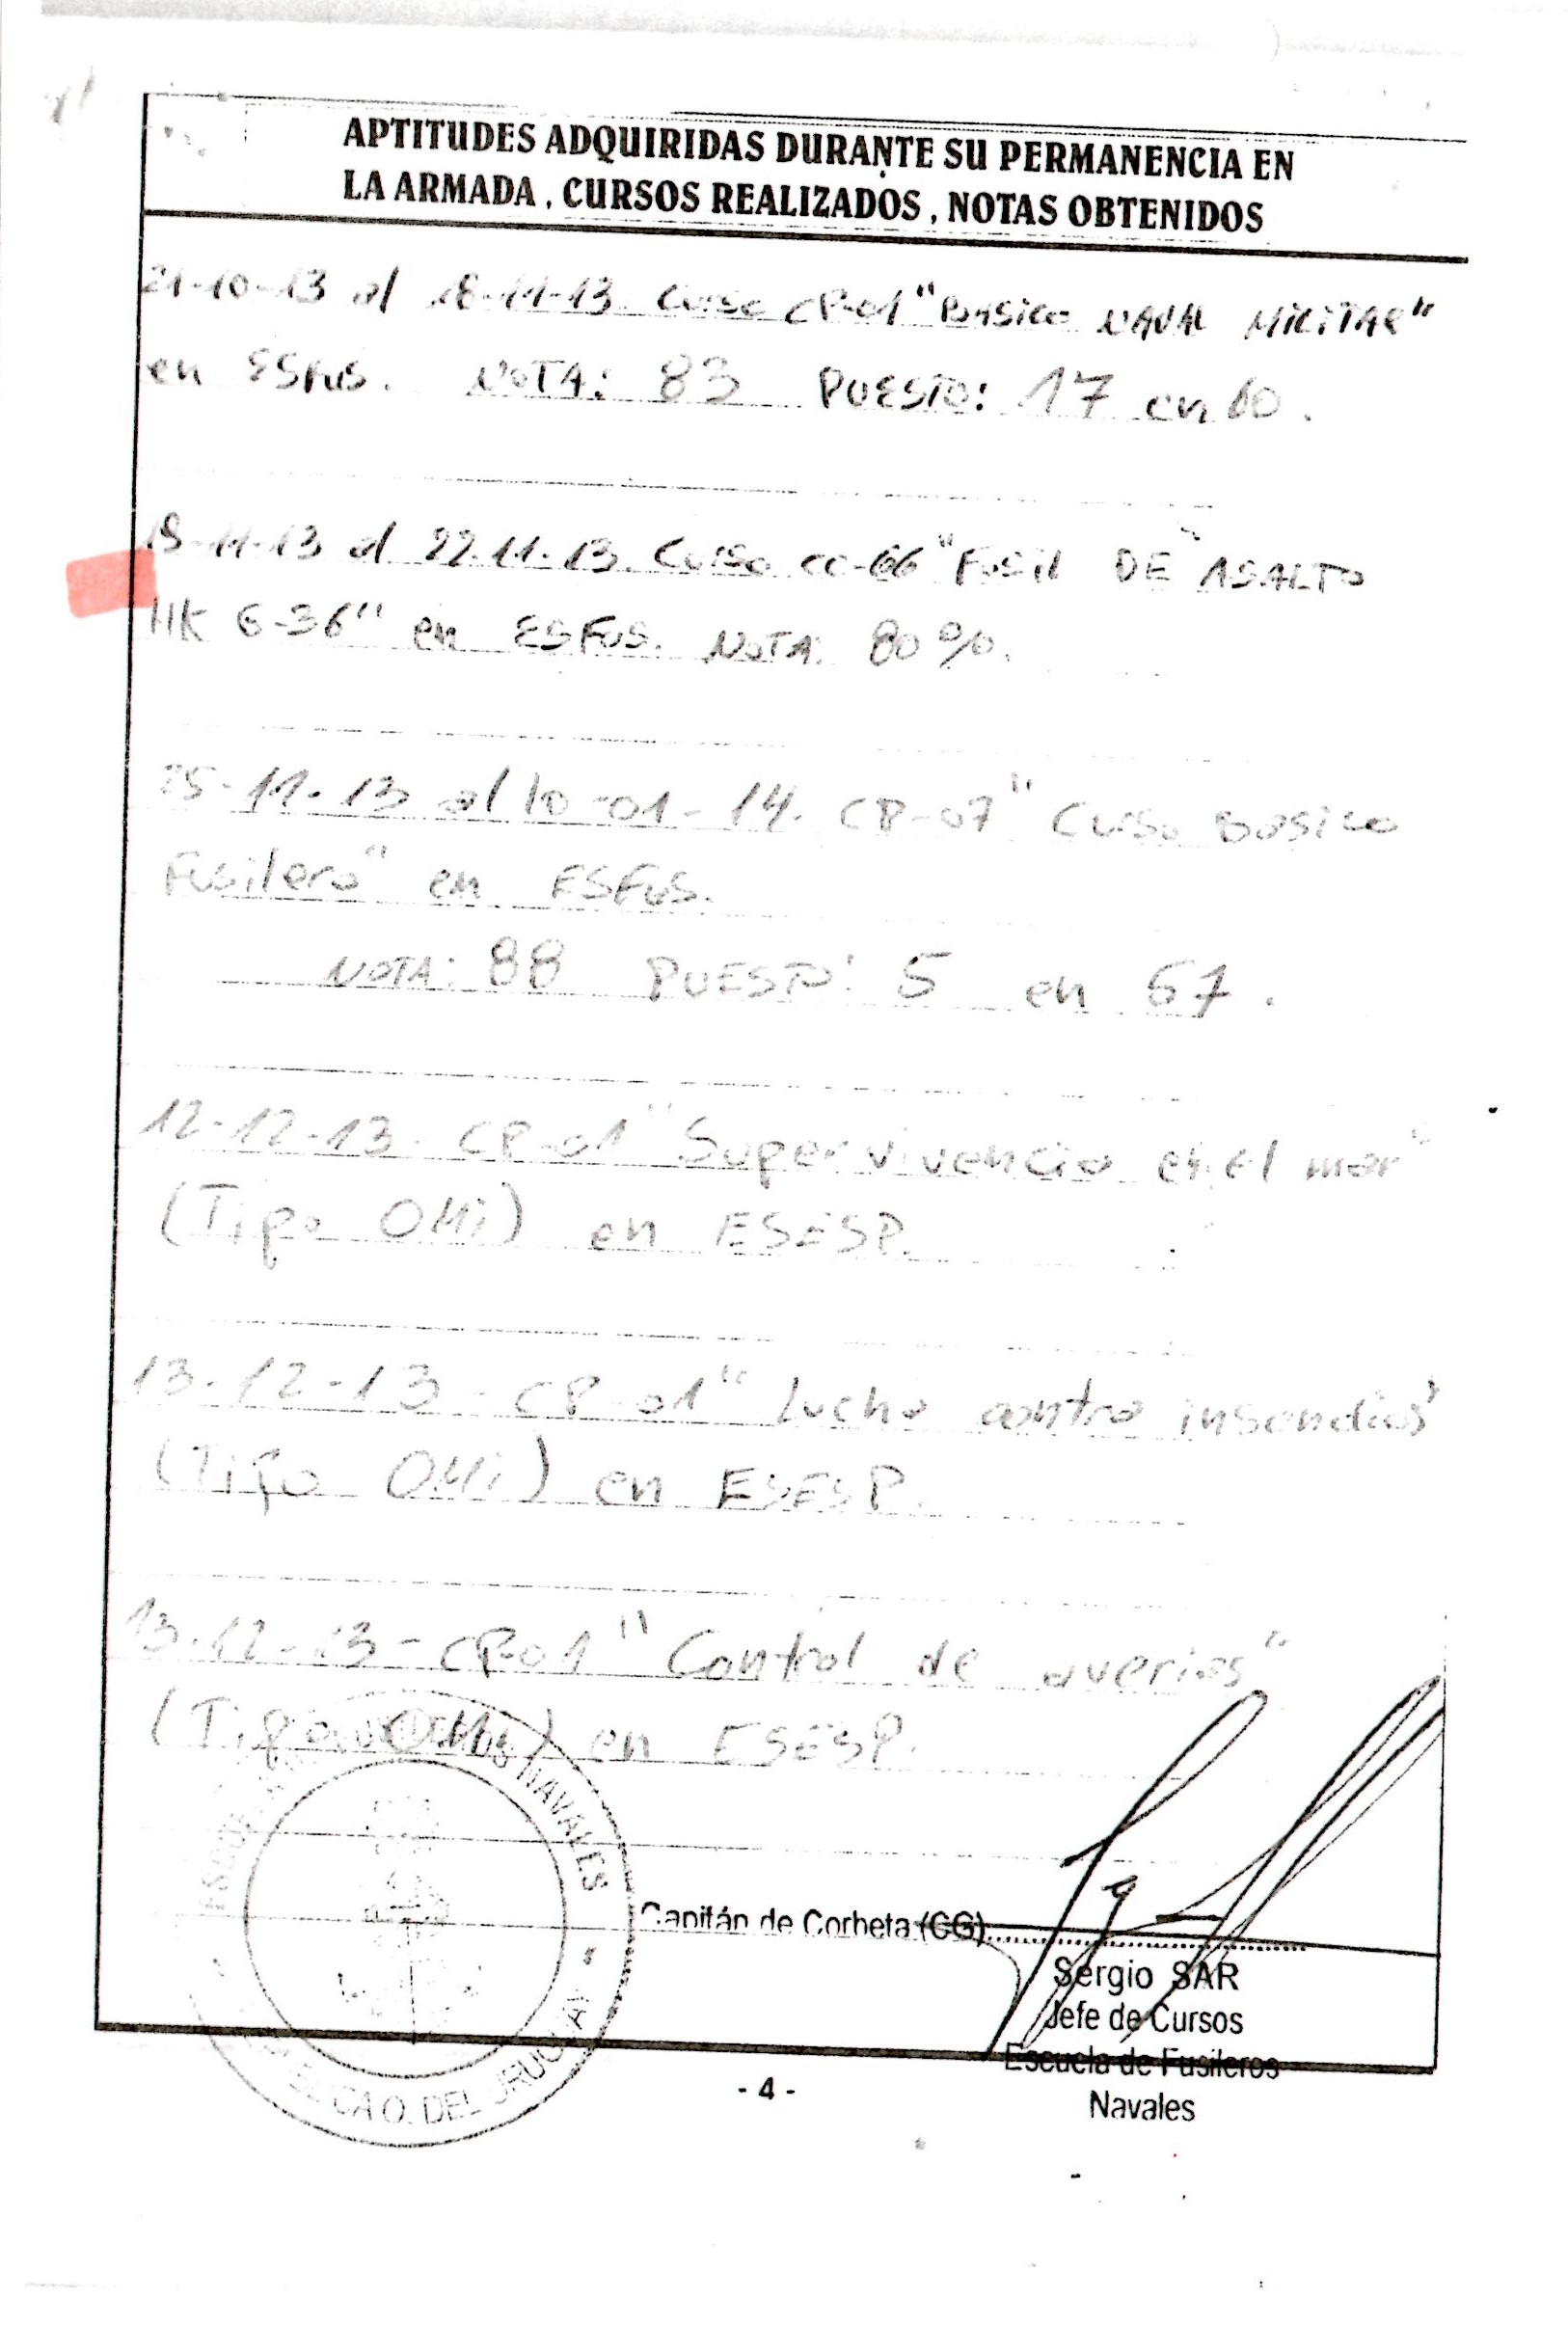 APTITUDES ADQUIRIDAS DURANTE SU PERMANENCIA EN
LA ARMADA , CURSOS REALIZADOS , NOTAS OBTENIDOS
21-10-13 al 18-11-13 Curso CP-01 "Basico NAVAL MILITAR"
en ESFUS. NOTA: 83 PUESTO: 17 en 60.
19-11-13 al 22-11-13. Curso CC-66 "Fusil DE ASALTO
HK G-36" en ESFUS. NOTA: 80%.
25-11-13 al 10-01-14. CP-07 "Curso Basico
Fusilero" en ESFUS.
NOTA: 88 PUESTO: 5 en 67.
12-12-13- CP-01 "Supervivencia en el mar"
(Tipo OMi) en ESESP.
13-12-13- CP-01 "Lucha contra insendios"
(Tipo OMi) en ESESP.
13-12-13- CP-01 "Control de averias"
(Tipo OMi) en ESESP.
NAVALES
Capitán de Corbeta (CG)
Sergio SAR
Jefe de Cursos
Escuela de Fusileros
Navales
O. DEL URUGUAY
- 4 -